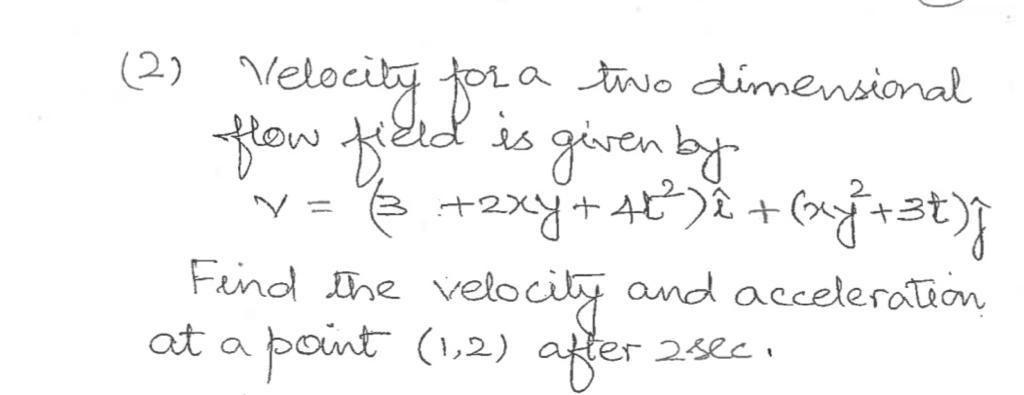 (2) Velocity for a two dimensional
flow field is given by
V = (3 +2xy+4t²)î + (xy²+3t)ĵ
Find the velocity and acceleration
at a point (1,2) after 2sec.